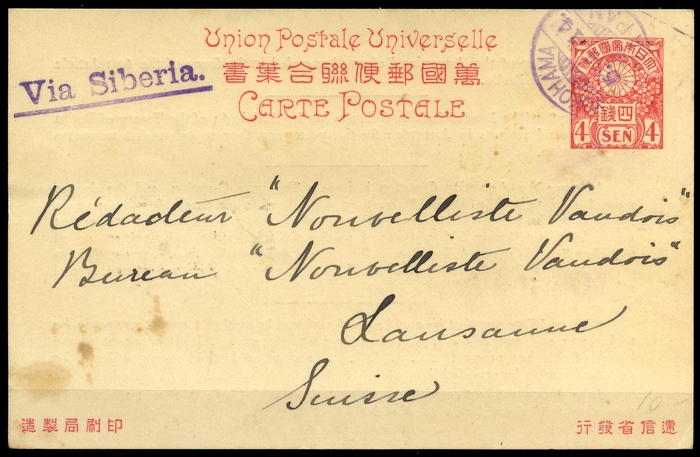 Union Postale Universelle
書葉合聯便郵國萬
CARTE POSTALE
Via Siberia.
YOKOHAMA
大日本帝國郵便
四錢
4 SEN 4
Rédacteur "Nouvelliste Vaudois"
Bureau "Nouvelliste Vaudois"
Lausanne
Suisse
10
造製局刷印
行發省信遞